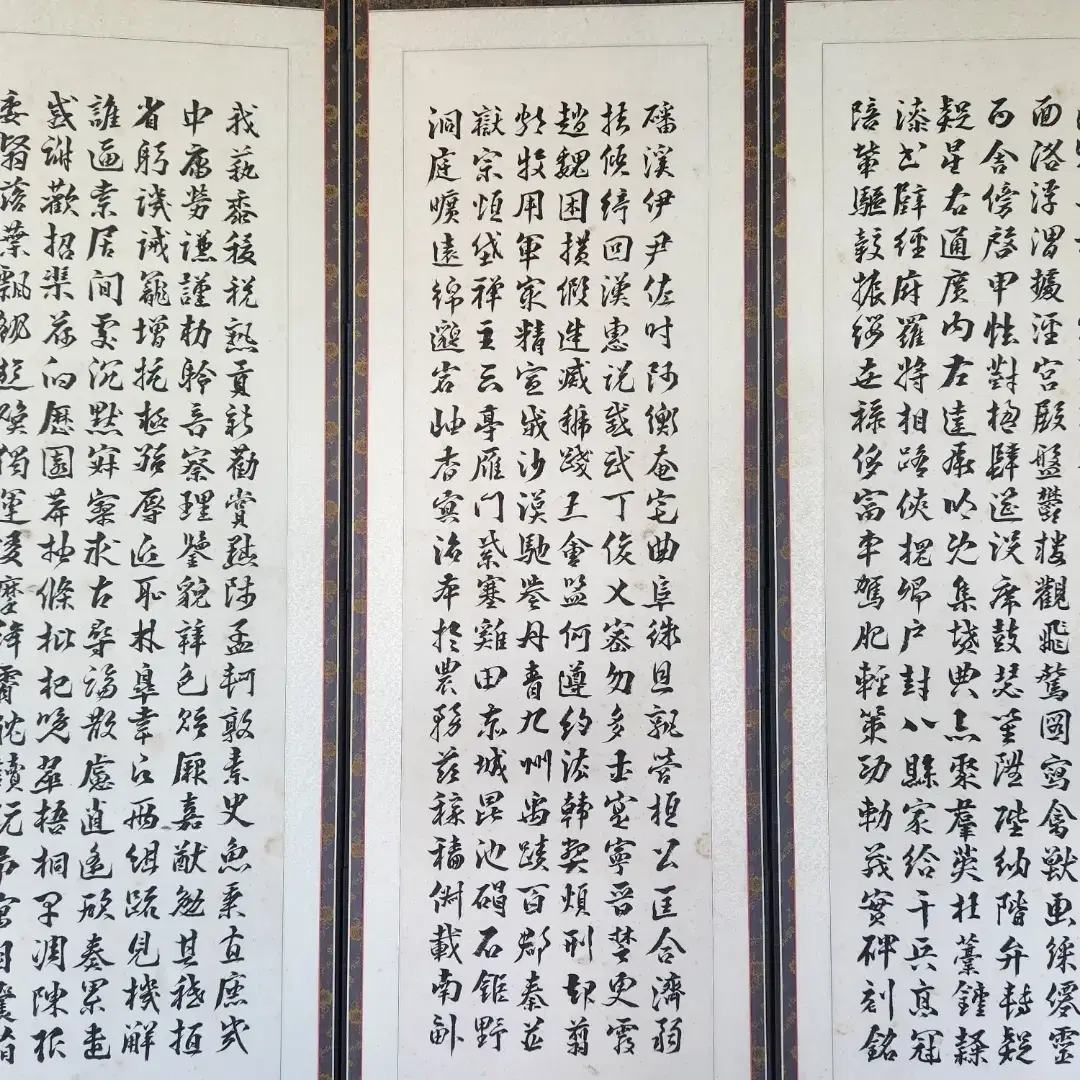 面洛浮渭據涇宮殿盤鬱樓觀飛驚圖寫禽獸畫綵僊靈
丙舍傍啓甲帳對楹肆筵設席鼓瑟笙陞陛納階弁轉疑
疑星右通廣內左達承明既集墳典亦聚羣英杜藁鍾隸
漆書壁經府羅將相路俠槐卿戶封八縣家給千兵高冠
陪輦驅轂振纓世祿侈富車駕肥輕策功勒茂實碑刻銘
磻溪伊尹佐時阿衡奄宅曲阜微旦孰營桓公匡合濟弱
扶傾綺回漢惠說感武丁俊乂密勿多士寔寧晉楚更霸
趙魏困橫假途滅虢踐土會盟何遵約法韓弊煩刑起翦
頗牧用軍最精宣威沙漠馳譽丹青九州禹蹟百郡秦並
嶽宗恆岱禪主云亭雁門紫塞雞田赤城昆池碣石鉅野
洞庭曠遠綿邈岩岫杳冥治本於農務茲稼穡俶載南畝
我藝黍稷稅熟貢新勸賞黜陟孟軻敦素史魚秉直庶幾
中庸勞謙謹勅聆音察理鑒貌辨色貽厥嘉猷勉其祗植
省躬譏誡寵增抗極殆辱近恥林皋幸即兩組疏見機解
誰逼索居間處沉默寂寥求古尋論散慮逍遙欣奏累遣
慼謝歡招渠荷的歷園莽抽條枇杷晚翠梧桐早凋陳根
委翳落葉飄颻遊鵾獨運凌摩絳霄耽讀翫市寓目囊箱